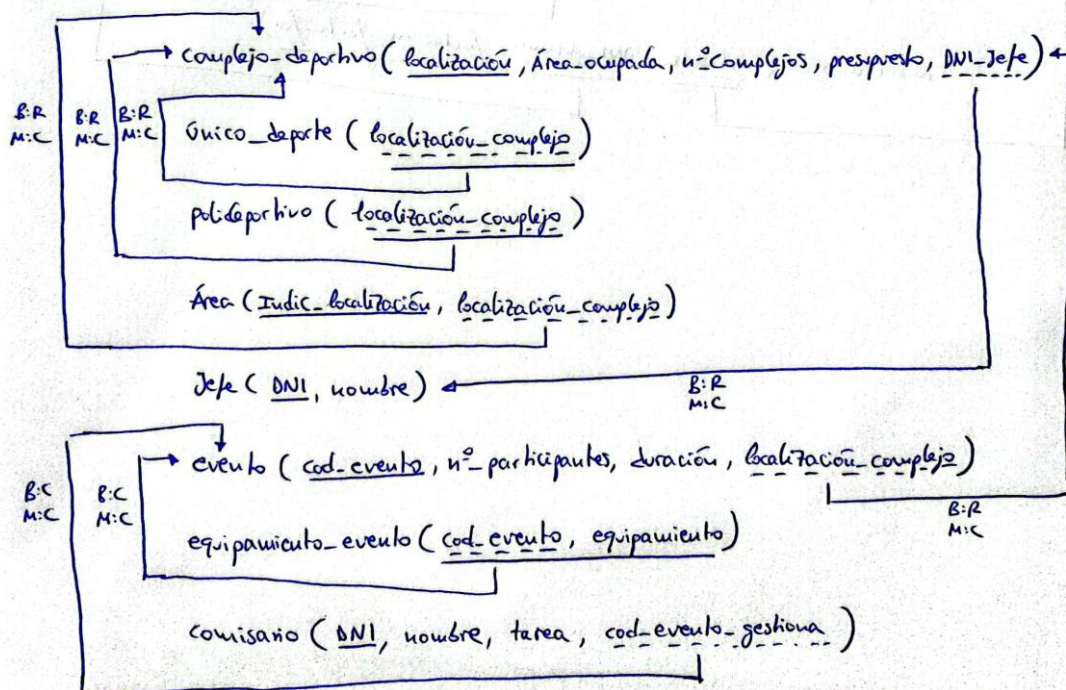 complejo_deportivo ( localización, Área_ocupada, nº_complejos, presupuesto, DNI_Jefe )
B:R
M:C
B:R
M:C
B:R
M:C
único_deporte ( localización_complejo )
polideportivo ( localización_complejo )
Área ( Indic_localización, localización_complejo )
Jefe ( DNI, nombre )
B:R
M:C
evento ( cod_evento, nº_participantes, duración, localización_complejo )
B:C
M:C
B:C
M:C
B:R
M:C
equipamiento_evento ( cod_evento, equipamiento )
comisario ( DNI, nombre, tarea, cod_evento_gestiona )